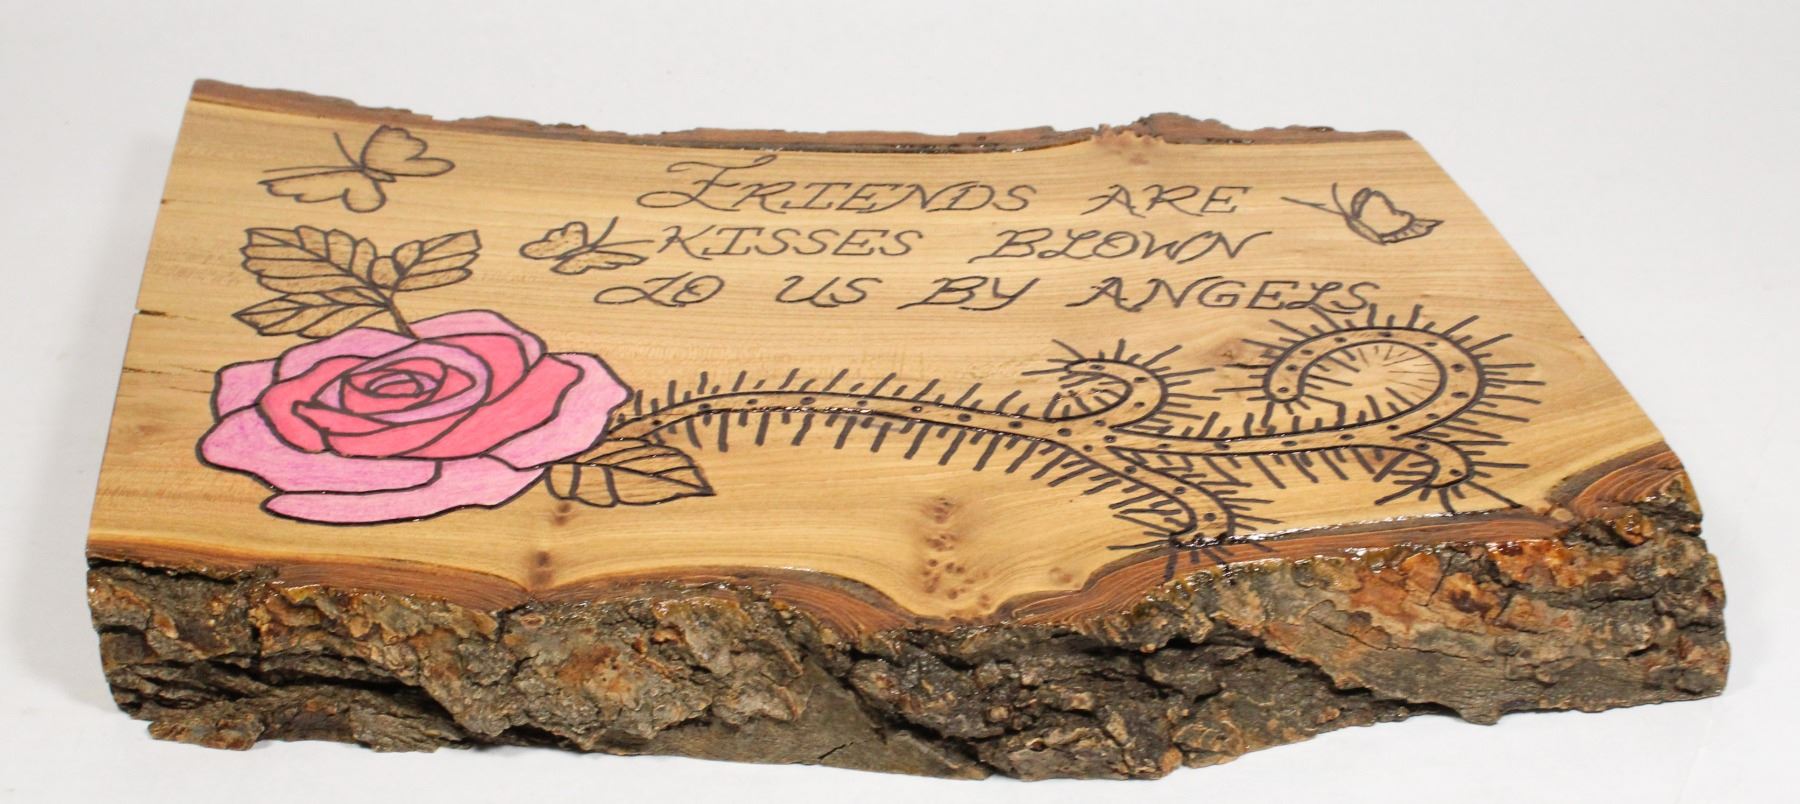 FRIENDS ARE
KISSES BLOWN
TO US BY ANGELS